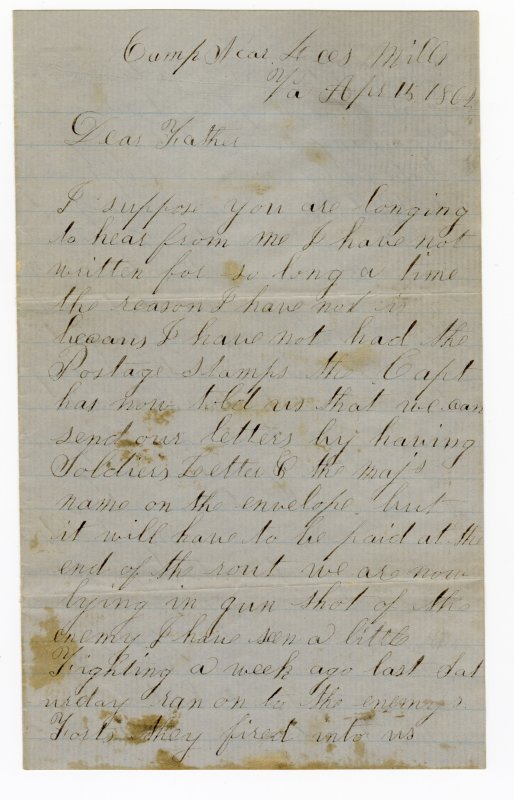 Camp Near Lees Mills
Va Apr 15 186
Dear Father
I suppose you are longing
to hear from me I have not
written for so long a time
the reason I have not is
becaus I have not had the
Postage Stamps the Capt
has now told us that we can
send our letters by having
Soldiers Letter & the maj's
name on the envelope but
it will have to be paid at the
end of the rout we are now
lying in gun shot of the
enemy I have seen a little
Fighting a week ago last Sat
urday ran on to the enemys
Forts they fired into us